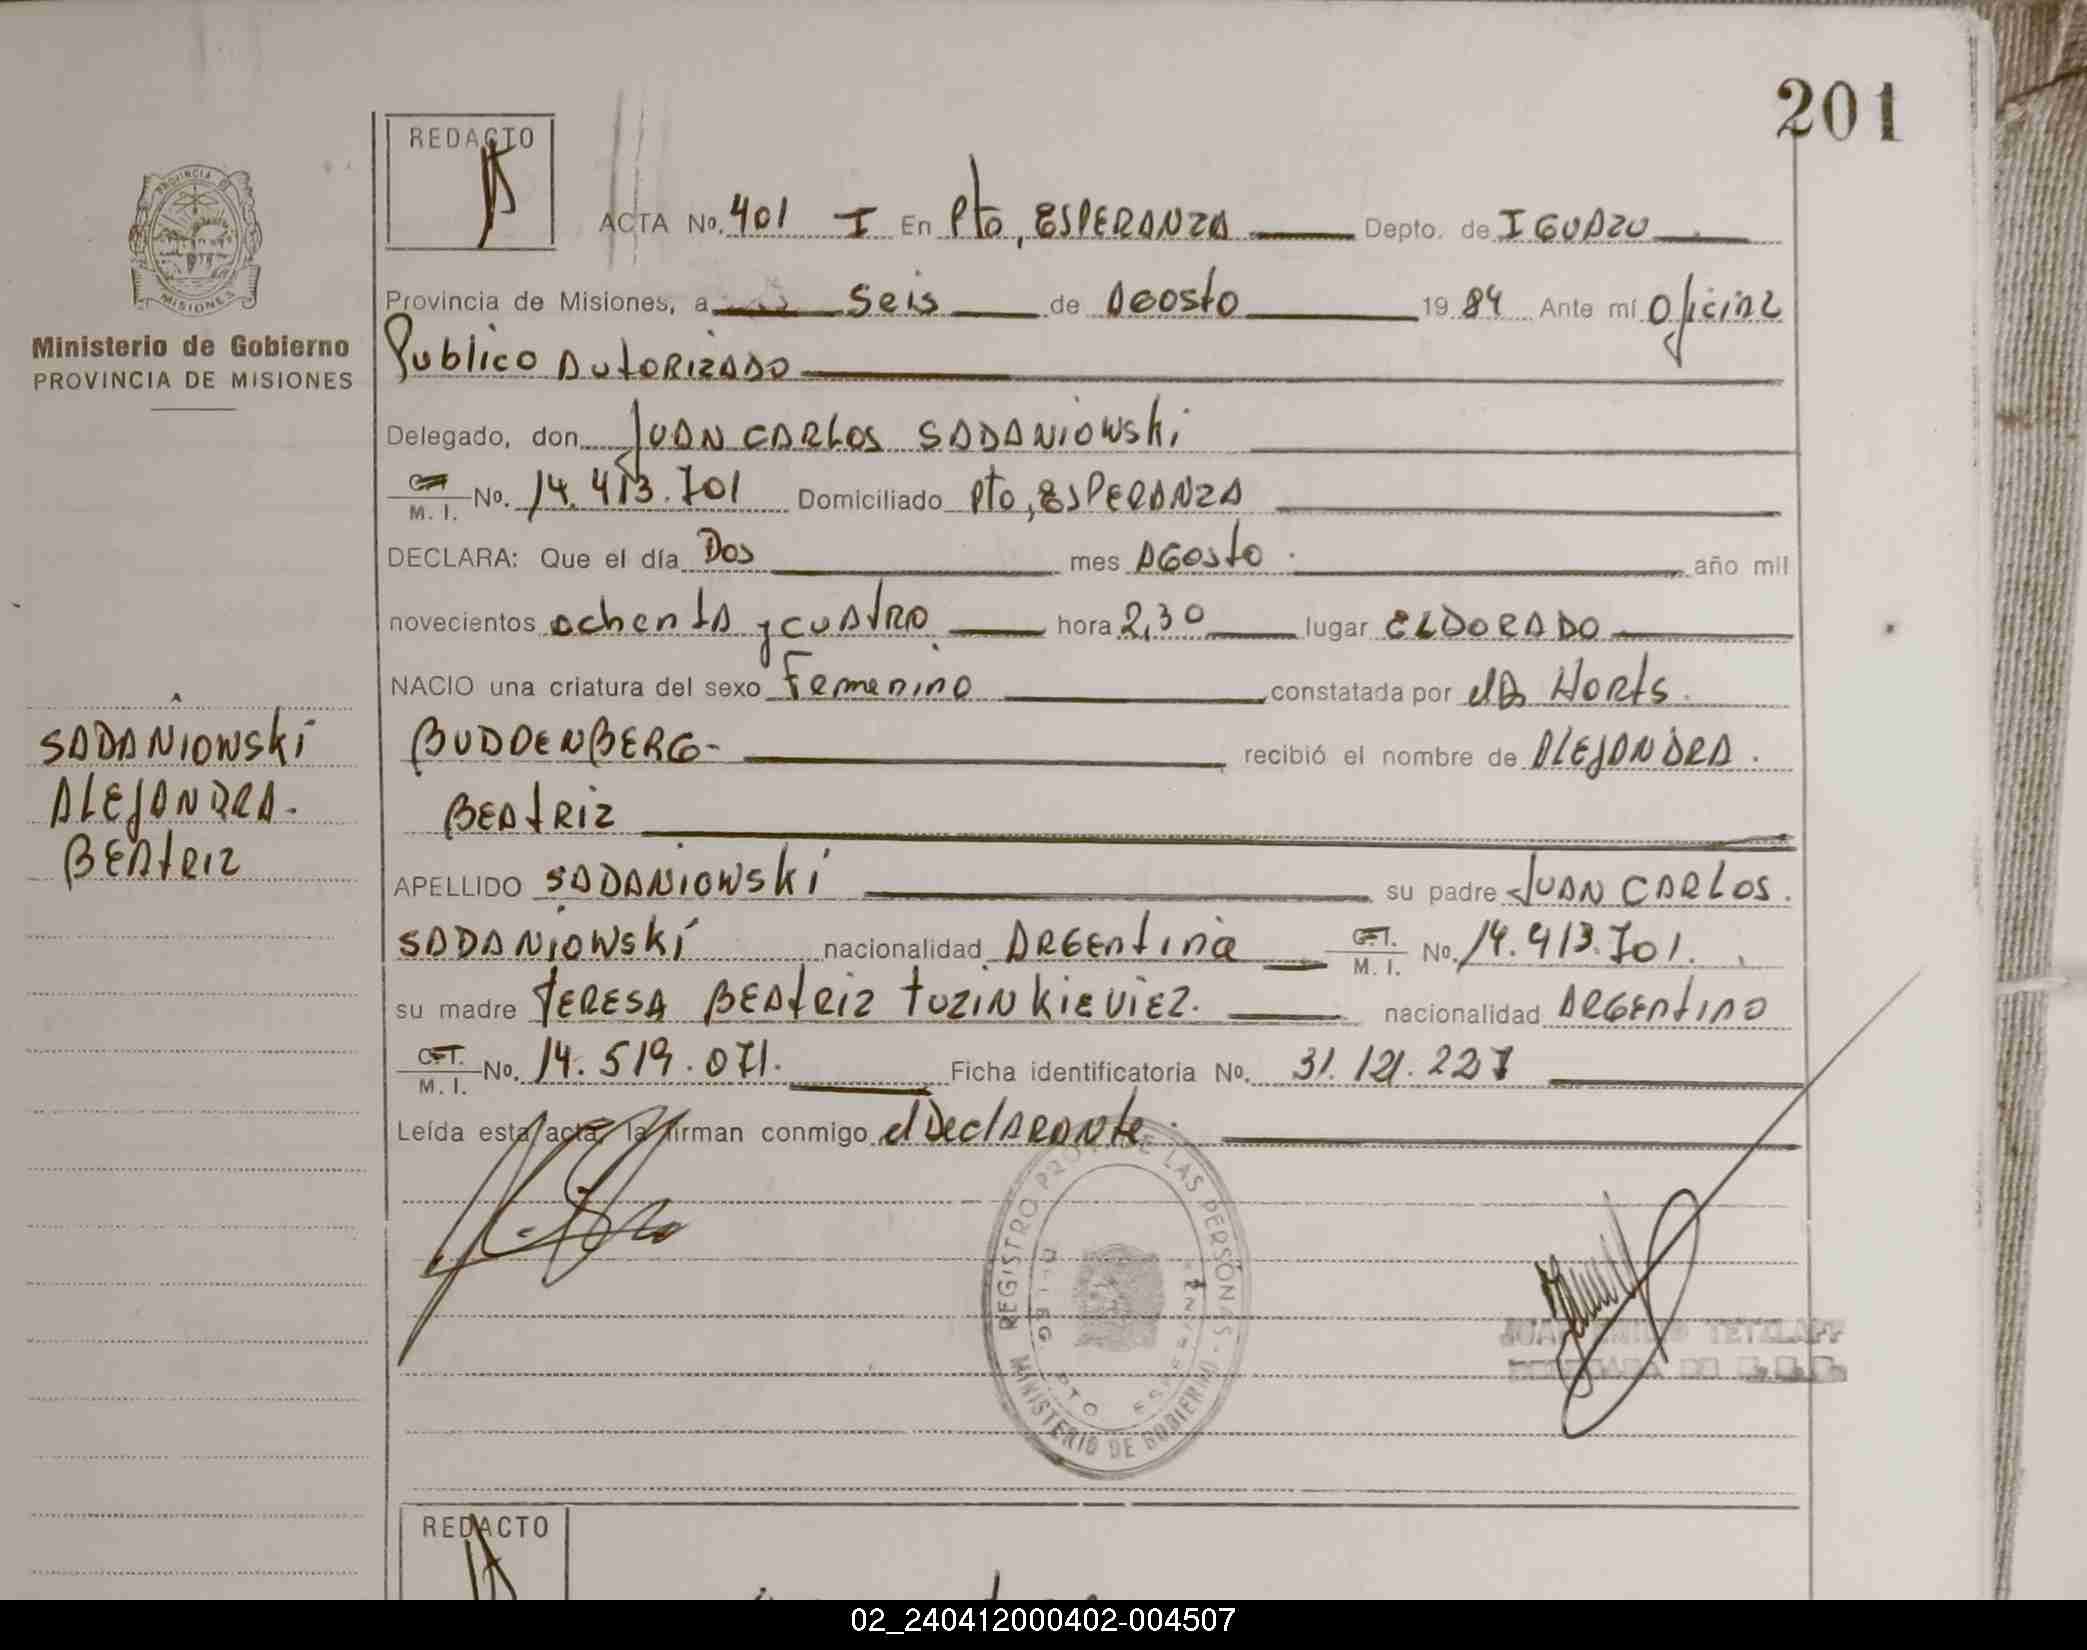 201
REDACTO
ACTA No. 401 I En Pto, ESPERANZA Depto. de IGUAZU
PROVINCIA DE MISIONES
Provincia de Misiones, a Seis de Agosto 1984 Ante mí Oficial
Ministerio de Gobierno
PROVINCIA DE MISIONES
Publico AutoRizado
Delegado, don JUAN CARLOS SADANiOWSki
C.I. M. I. No. 14.413.701 Domiciliado Pto, ESPERANZA
DECLARA: Que el día Dos mes AGosto año mil
novecientos ochenta y cuatro hora 2,30 lugar ELDORADO
NACIO una criatura del sexo Femenino constatada por el Dr Horts.
BUDDENBERG- recibió el nombre de ALEJANDRA.
BEAtRiz
SADANiOWSki
ALEJANDRA-
BEAtRiz
APELLIDO SADANiOWSki su padre JUAN CARLOS.
SADANiOWSki nacionalidad ARGEntina C.I. M. I. No. 14.413.701.
su madre TERESA BEAtRiz tuzinkieviez. nacionalidad ARGEntino
C.I. M. I. No. 14.519.071. Ficha identificatoria No. 31.121.227
Leída esta acta, la firman conmigo el DeclARAnte.
REGISTRO PROV. DE LAS PERSONAS - MINISTERIO DE GOBIERNO
PTO ESPERANZA
TETZLAFF
REDACTO
02_240412000402-004507